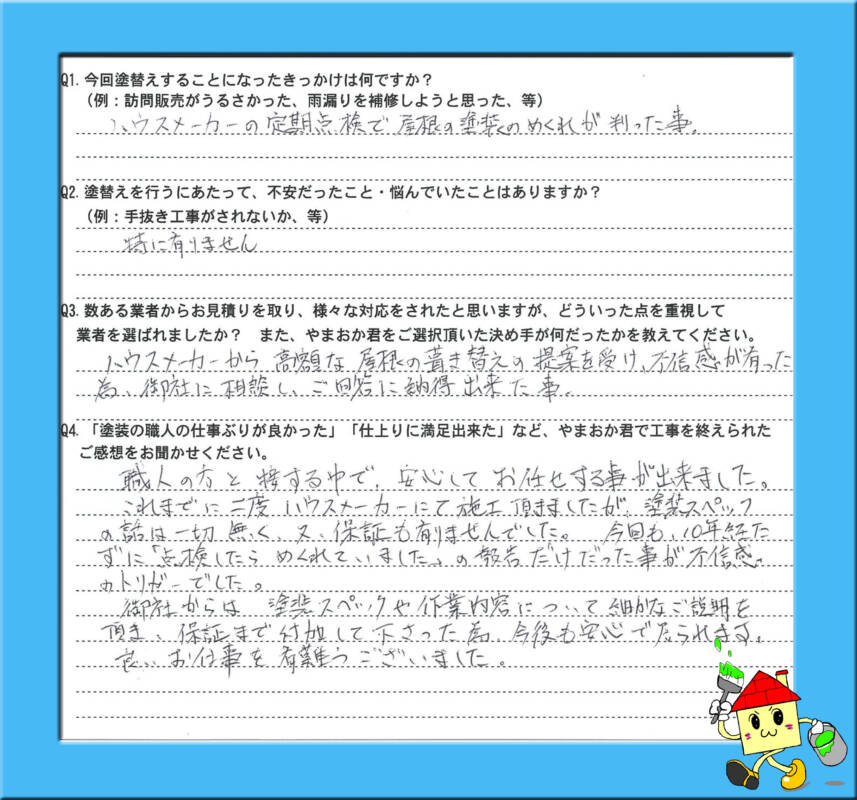 Q1. 今回塗替えすることになったきっかけは何ですか?
(例:訪問販売がうるさかった、雨漏りを補修しようと思った、等)
ハウスメーカーの定期点検で屋根の塗装のめくれが判った事。
Q2. 塗替えを行うにあたって、不安だったこと・悩んでいたことはありますか?
(例:手抜き工事がされないか、等)
特に有りません
Q3. 数ある業者からお見積りを取り、様々な対応をされたと思いますが、どういった点を重視して
業者を選ばれましたか? また、やまおか君をご選択頂いた決め手が何だったかを教えてください。
ハウスメーカーから高額な屋根の葺き替えの提案を受け、不信感が有った
為、御社に相談し、ご回答に納得出来た事。
Q4. 「塗装の職人の仕事ぶりが良かった」「仕上りに満足出来た」など、やまおか君で工事を終えられた
ご感想をお聞かせください。
職人の方と接する中で、安心してお任せする事が出来ました。
これまでに二度ハウスメーカーにて施工頂きましたが、塗装スペック
の話は一切無く、又、保証も有りませんでした。 今回も、10年経た
ずに「点検したらめくれていました」の報告だけだった事が不信感
のトリガーでした。
御社からは 塗装スペックや作業内容について細かなご説明を
頂き、保証まで付加して下さった為、今後も安心で居られます。
良いお仕事を有難うございました。